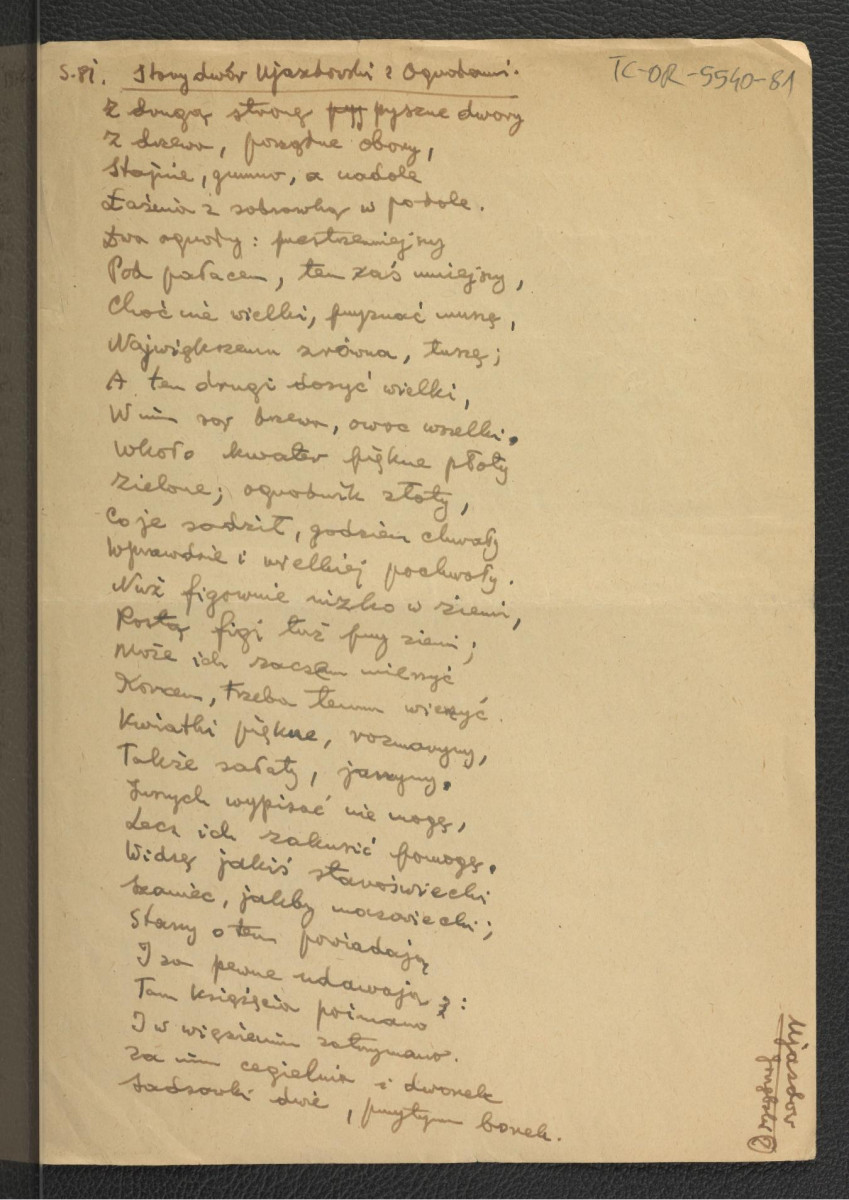 TC-OR-5540-81
S. 81. Stary dwór Ujazdowski z Ogrodami.
Z drugą stronę pyj pyszne dwory
Z drzewa, porządne obory,
Stajnie, gumno, a nadole
Łaźnia z sadzawką w podole.
Dwa ogrody: przestrzenniejszy
Pod pałacem, ten zaś mniejszy,
Choć nie wielki, przyznać muszę,
Największemu zrówna, tuszę;
A ten drugi dosyć wielki,
W nim są drzewa, owoc wszelki.
Wkoło kwater piękne płoty
Zielone; ogrodnik złoty,
Co je sadził, godzien chwały
Wprawdzie i wielkiej pochwały.
Nuż figownie nizko w ziemi,
Rostą figi tuż przy ziemi;
Może ich zaczem mierzyć
Korcem, trzeba temu wierzyć.
Kwiatki piękne, rozmaryny,
Także sałaty, jarzyny.
Innych wypisać nie mogę,
Lecz ich zakusić pomogę.
Widzę jakiś staroświecki
Szaniec, jakby mazowiecki;
Starzy o tem powiadają
I za pewne udawają:
Tam książęcia poimano
I w więzieniu zatrzymano.
Za nim cegielnia i dworek
Sadzawki dwie, przytym borek.
Ujazdow